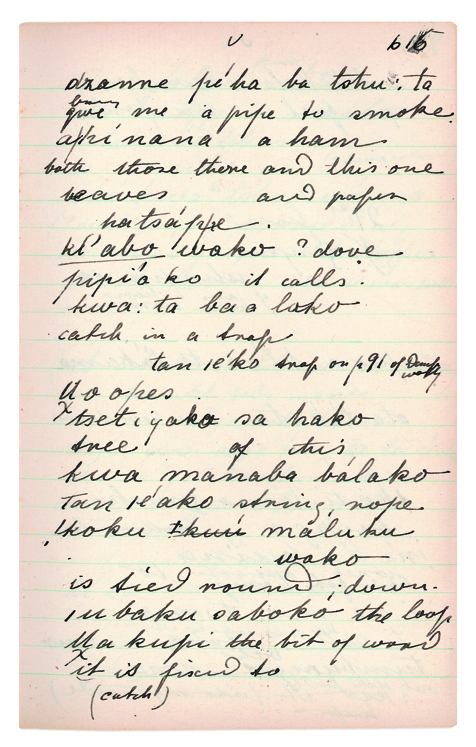 v 616
dzanne péha ba tshu: ta
give me a pipe to smoke.
nana a ham
both those there and this one
leaves and paper
hatsáppe.
kí'abo wako ? dove
pipi a ko it calls.
kwa: ta ba a lako
catch in a trap
tan ié'ko snap on p 91 of
tseti yako sa hako
tree of this
kwa manaba bálako
tan ié'ako string, rope
koku máluku
wako
is tied round, down.
baku saboko the loop
kupi the bit of wood
it is fixed to
(catch)